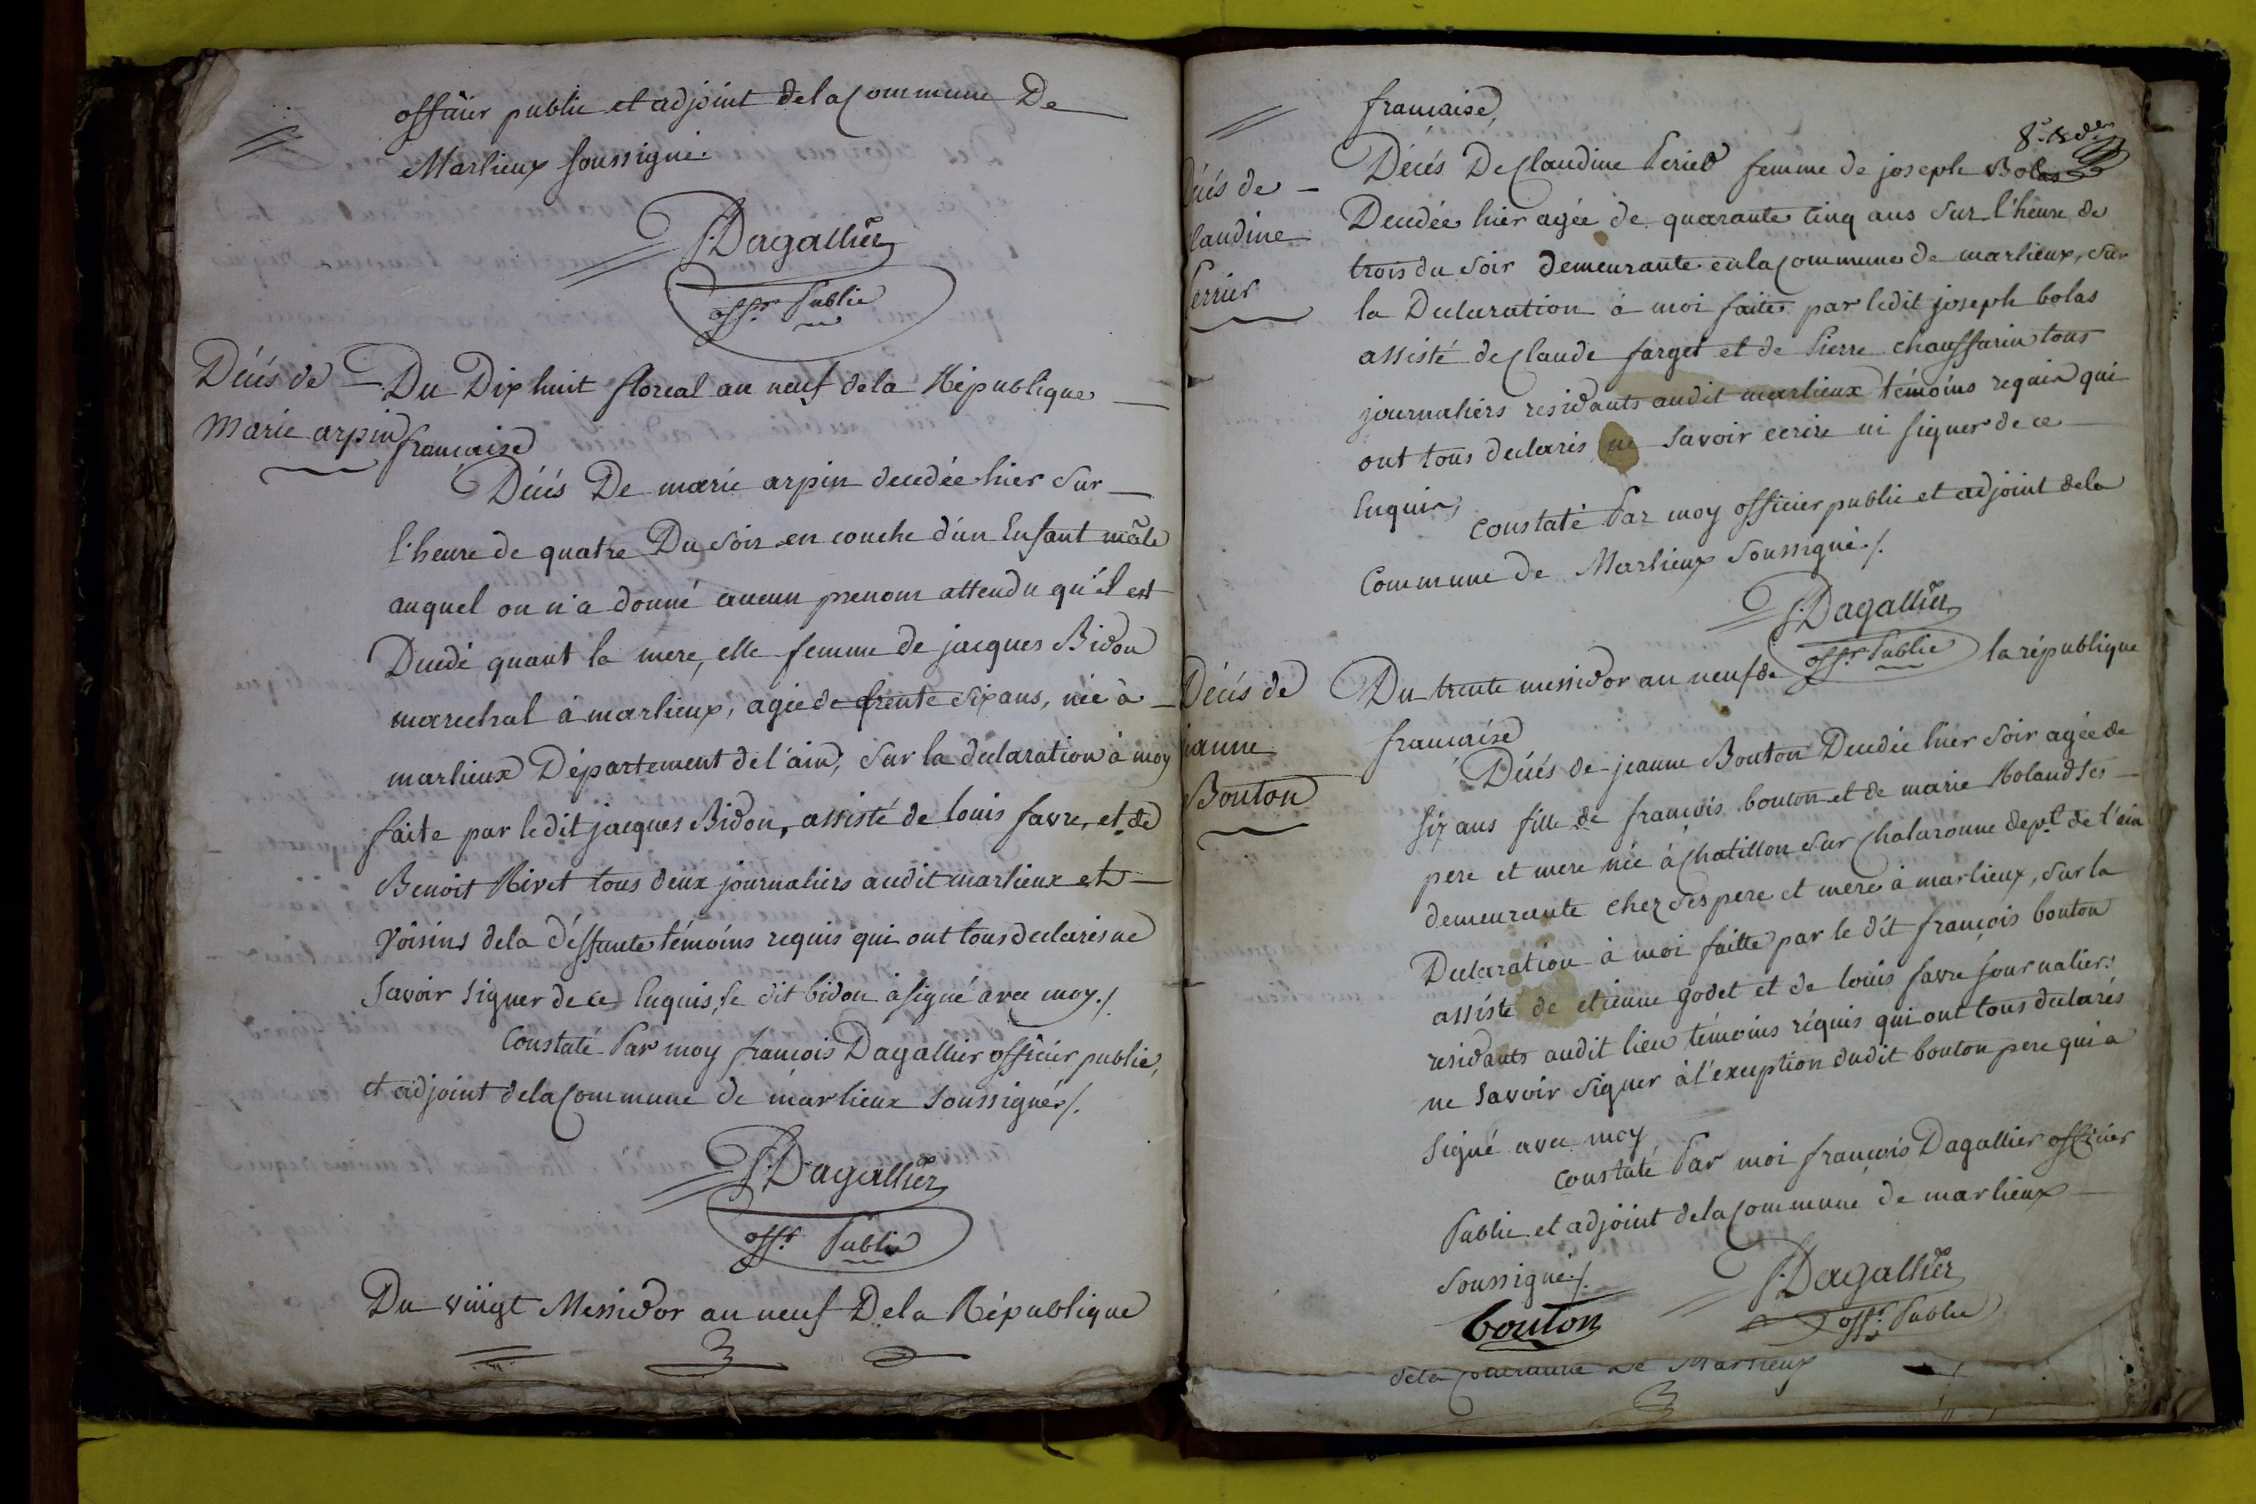 officier public et adjoint dela Commune De
Marlieux soussigné.
f. Dagallier
offr. Public
Décés de
Marie arpin
Du Dix huit floreal an neuf dela République
française
Décés De marie arpin decedée hier sur
l'heure de quatre Du soir en couche d'un Enfant mâle
auquel on n'a donné aucun prenom attendu qu'il est
Decedé quant la mere, elle femme de jacques Bidon
marechal à marlieux, agée de trente six ans, née à
marlieux Département de l'ain, sur la declaration à moy
faite par le dit jacques Bidon, assisté de louis favre, et de
Benoit Rivet tous deux journaliers audit marlieux et
voisins dela déffunte témoins requis qui ont tous declarés ne
savoir signer de ce Enquis, le dit bidon à signé avec moy./.
Constaté Par moy françois Dagallier officier public,
et adjoint dela Commune de marlieux soussigné./.
f. Dagallier
offr. Public
Du vingt Messidor an neuf Dela République
française
8e. &
Décés de
Claudine
Perrier
Décés De Claudine Perier femme de joseph Bolas
Decedée hier agée de quarante cinq ans sur l'heure de
trois du soir demeurante en la Commune de marlieux, sur
la Declaration à moi faite par ledit joseph bolas
assisté de Claude farget et de Pierre chauffarin tous
journaliers residants audit marlieux témoins requis qui
ont tous declarés ne savoir ecrire ni signer de ce
Enquis,
Constaté Par moy officier public et adjoint dela
Commune de Marlieux soussigné./.
f. Dagallier
offr. Public
Décés de
jeanne
Bouton
Du trente messidor an neuf de la république
française
Décés de jeanne Bouton Decedée hier soir agée de
six ans fille de françois bouton et de marie Roland ses
pere et mere née à Chatillon sur Chalaronne dept. de l'ain
demeurante chez ses pere et mere à marlieux, sur la
Declaration à moi faitte par le dit françois bouton
assisté de etienne godet et de louis favre journaliers
residants audit lieu témoins réquis qui ont tous declarés
ne savoir signer à l'exception dudit bouton pere qui a
signé avec moy
Constaté Par moi françois Dagallier officier
Public et adjoint dela Commune de marlieux
soussigné./.
bouton
f. Dagallier
offr. Public
dela Commune de Marlieux